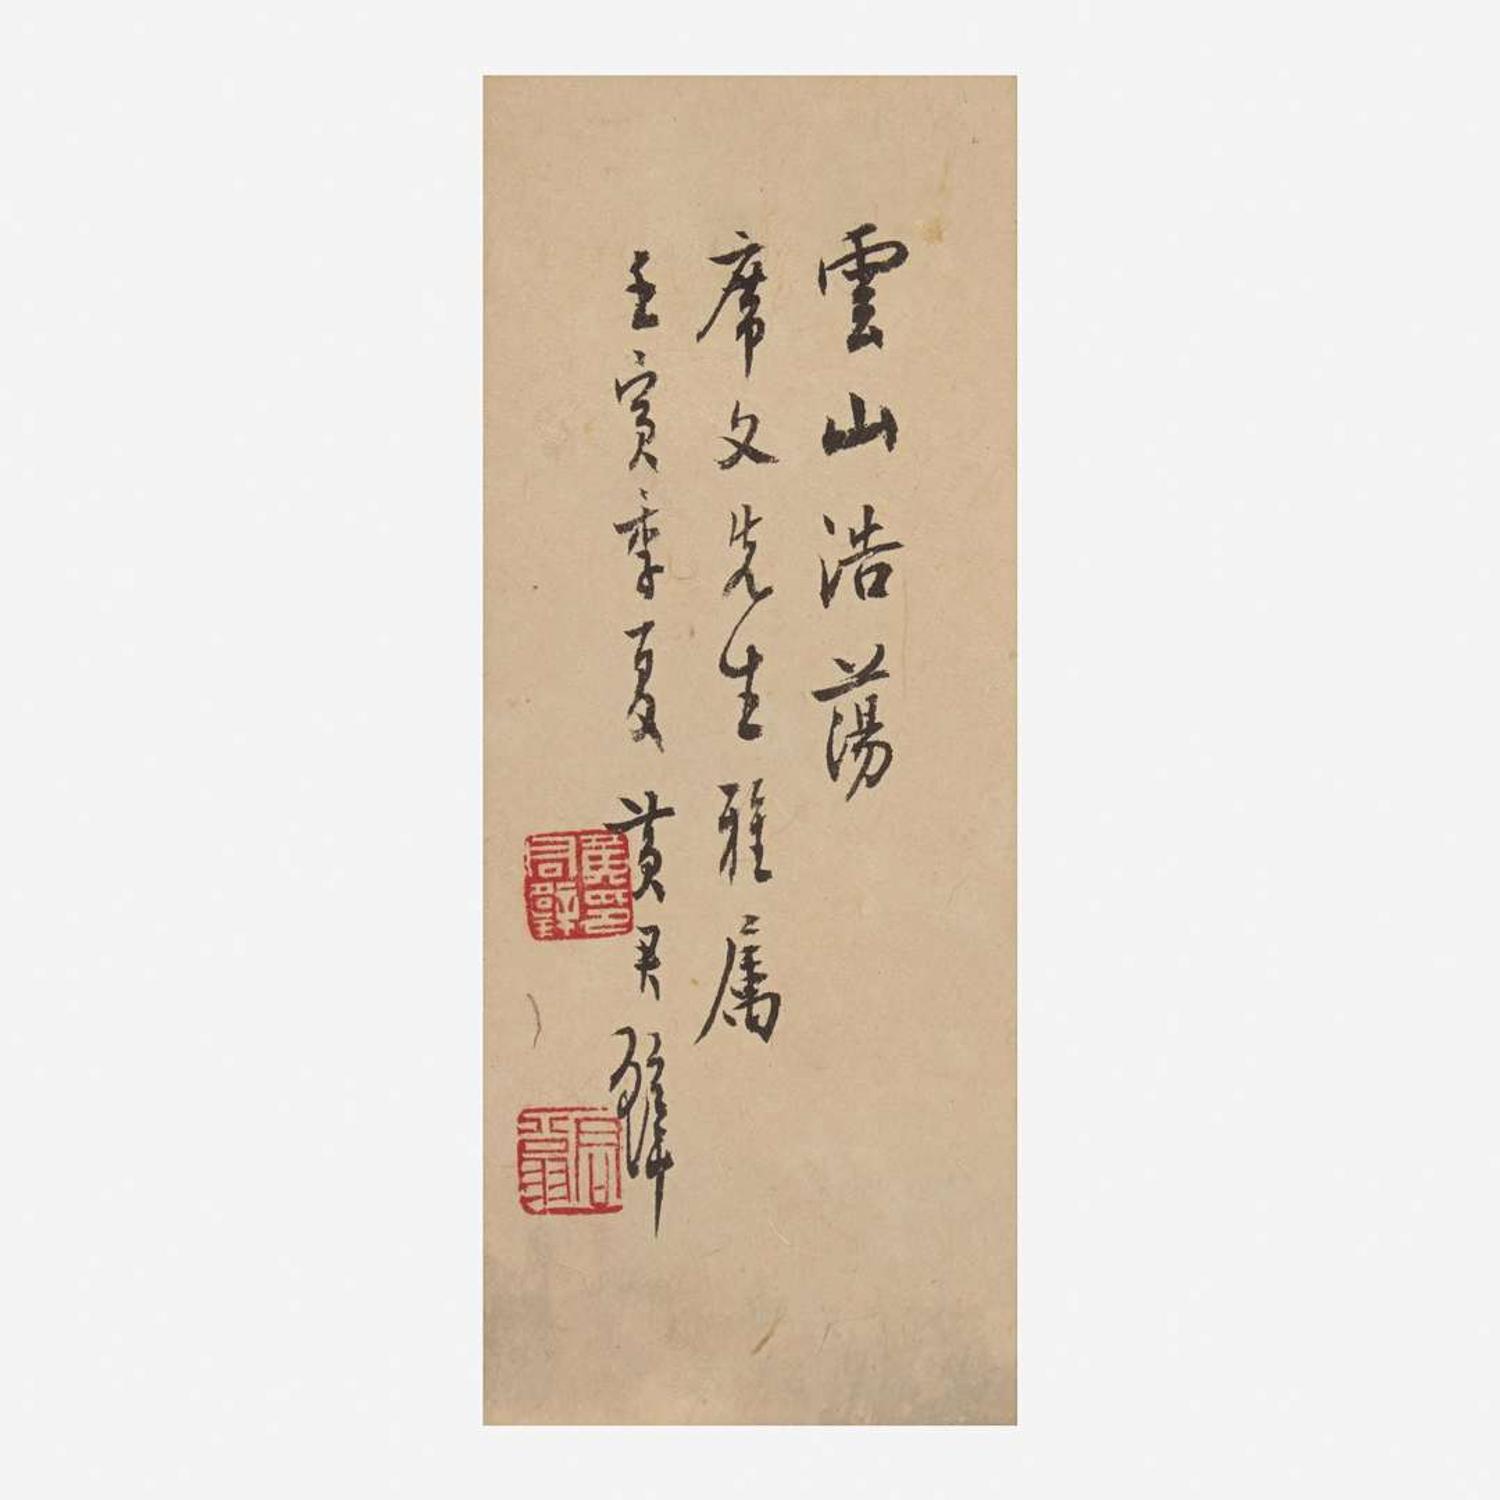 雲山浩蕩
席文先生雅属
壬寅季夏 黃君璧
黃君璧印
君翁